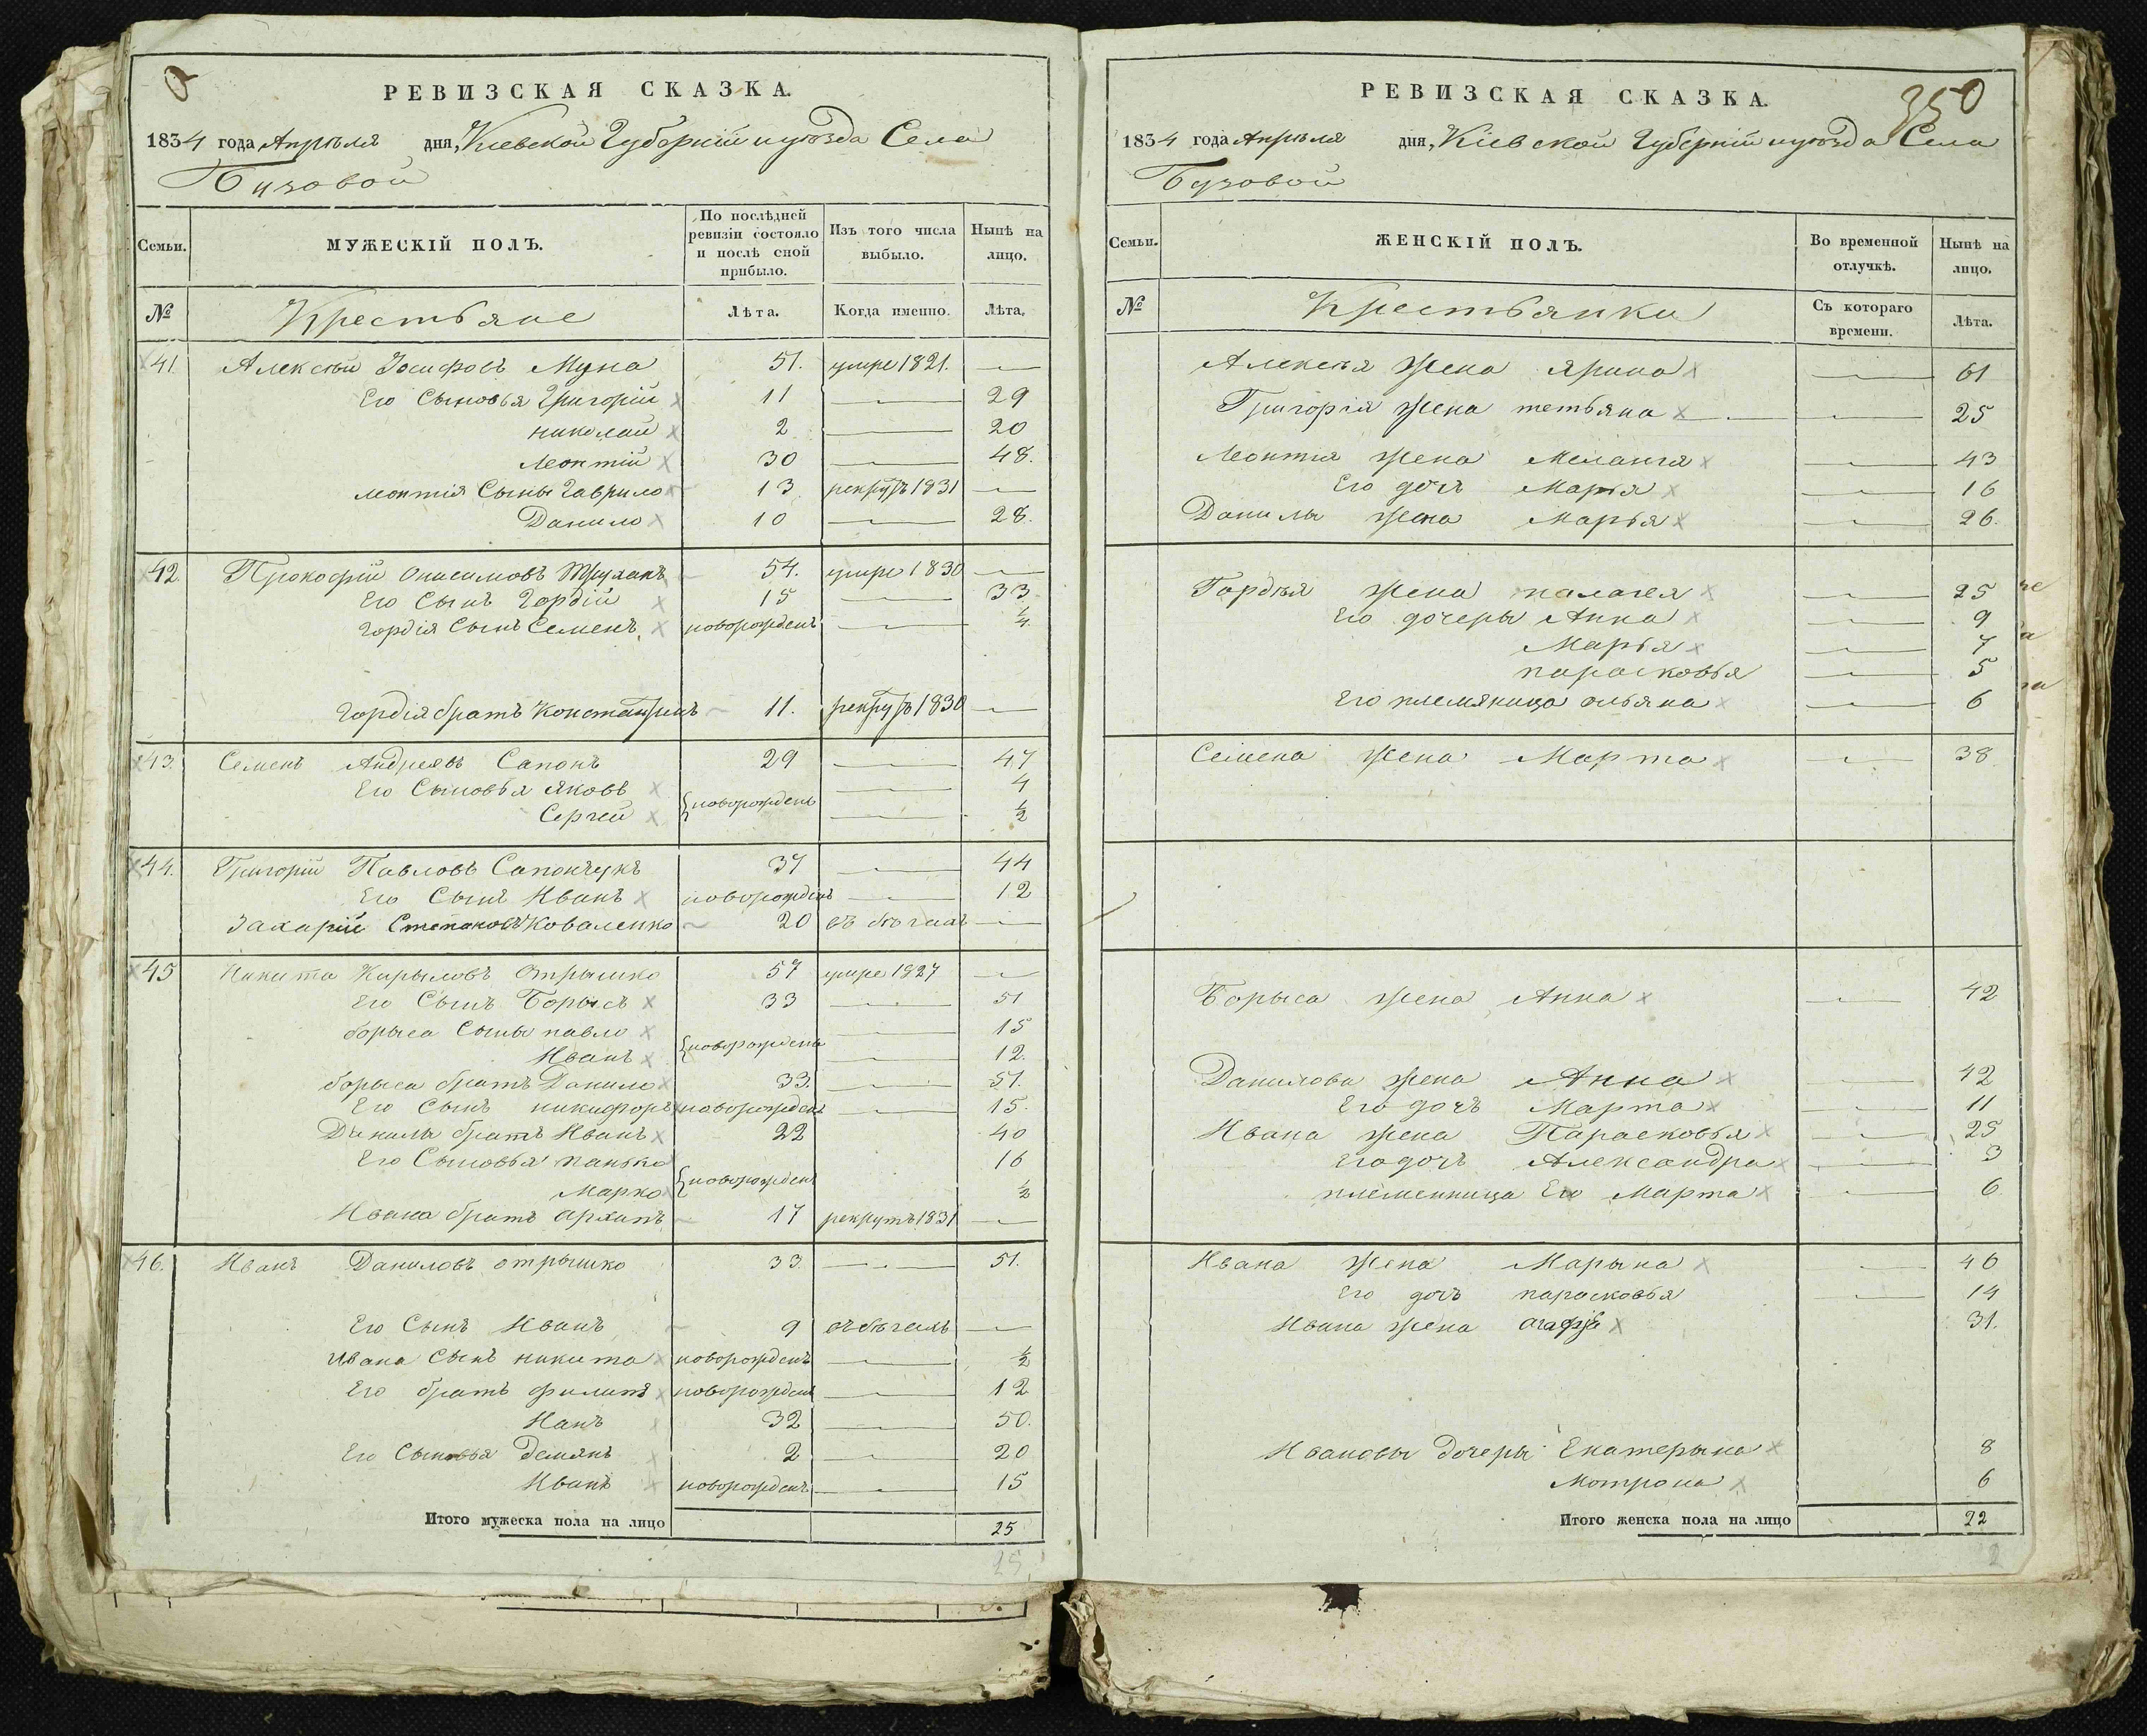 РЕВИЗСКАЯ СКАЗКА.
1834 года Апрѣля дня, Кіевской Губерніи и уѣзда Села
Бузовой
Семьи. МУЖЕСКІЙ ПОЛЪ. По послѣдней ревизіи состояло и послѣ оной прибыло. Изъ того числа выбыло. Нынѣ на лицо.
№ Крестьяне Лѣта. Когда именно. Лѣта.
41. Алексѣй Іосифовъ Муха 51. умре 1821. —
Его Сыновья Григорій 11 — 29
николай 2 — 20
Леонтій 30 — 48.
леонтія Сыны Гаврило 13 рекрутъ 1831 —
Данило 10 — 28.
42. Прокофій Онисимовъ 54. умре 1830 —
Его Сынъ Гордій 15 — 33
Гордія Сынъ Семенъ новорожденъ — ¼
Гордія братъ Константинъ 11. рекрутъ 1830 —
43. Семенъ Андреевъ Сапонъ 29 — 47
Его Сыновья Яковъ — 4
Сергей {новорожденъ — ½
44. Григорій Павловъ Сапончукъ 37 — 44
Его Сынъ Иванъ новорожденъ — 12
Захарій Степановъ Коваленко 20 въ бѣгахъ —
45 Никита Кирыловъ Отрышко 57 умре 1827 —
Его Сынъ Борысъ 33 — 51
борыса Сыны павло — 15
Иванъ {новорождены — 12.
борыса братъ Данило 33. — 51.
Его Сынъ никифоръ новорожденъ — 15.
Данилы братъ Иванъ 22 40
Его Сыновья панько 16
Марко {новорожденъ ½
Ивана братъ архипъ 17 рекрутъ 1831 —
46. Иванъ Даниловъ отрышко 33. — 51.
Его Сынъ Иванъ 9 въ бѣгахъ —
Ивана Сынъ никита новорожденъ — ½
Его братъ филипъ новорожденъ — 12
Иванъ 32 — 50.
Его Сыновья демянъ 2 — 20
Иванъ новорожденъ — 15
Итого мужеска пола на лицо 25
25
350
РЕВИЗСКАЯ СКАЗКА.
1834 года Апрѣля дня, Кіевской Губерніи и уѣзда Села
Бузовой
Семьи. ЖЕНСКІЙ ПОЛЪ. Во временной отлучкѣ. Нынѣ на лицо.
№ Крестьянки Съ котораго времени. Лѣта.
Алексѣя Жена Ярина — 61
Григорія Жена тетьяна — 25
Леонтія Жена Меланія — 43
Его дочъ Марья — 16
Данилы Жена Марья — 26.
Гордѣя Жена палагея — 25
Его дочеры Анна — 9
Марья — 7
парасковья — 5
Его племяница ольяна — 6
Семена Жена Марта — 38
Борыса жена Анна — 42
Данилова жена Анна — 42
Его дочъ Марта — 11
Ивана жена Парасковья — 25
Его дочъ Александра — 3
племенница Его Марта — 6
Ивана Жена Марына — 46
Его дочъ парасковья — 14
Ивана жена агафія 31.
Ивановы дочеры Екатерына 8
Мотрона 6
Итого женска пола на лицо 22
2